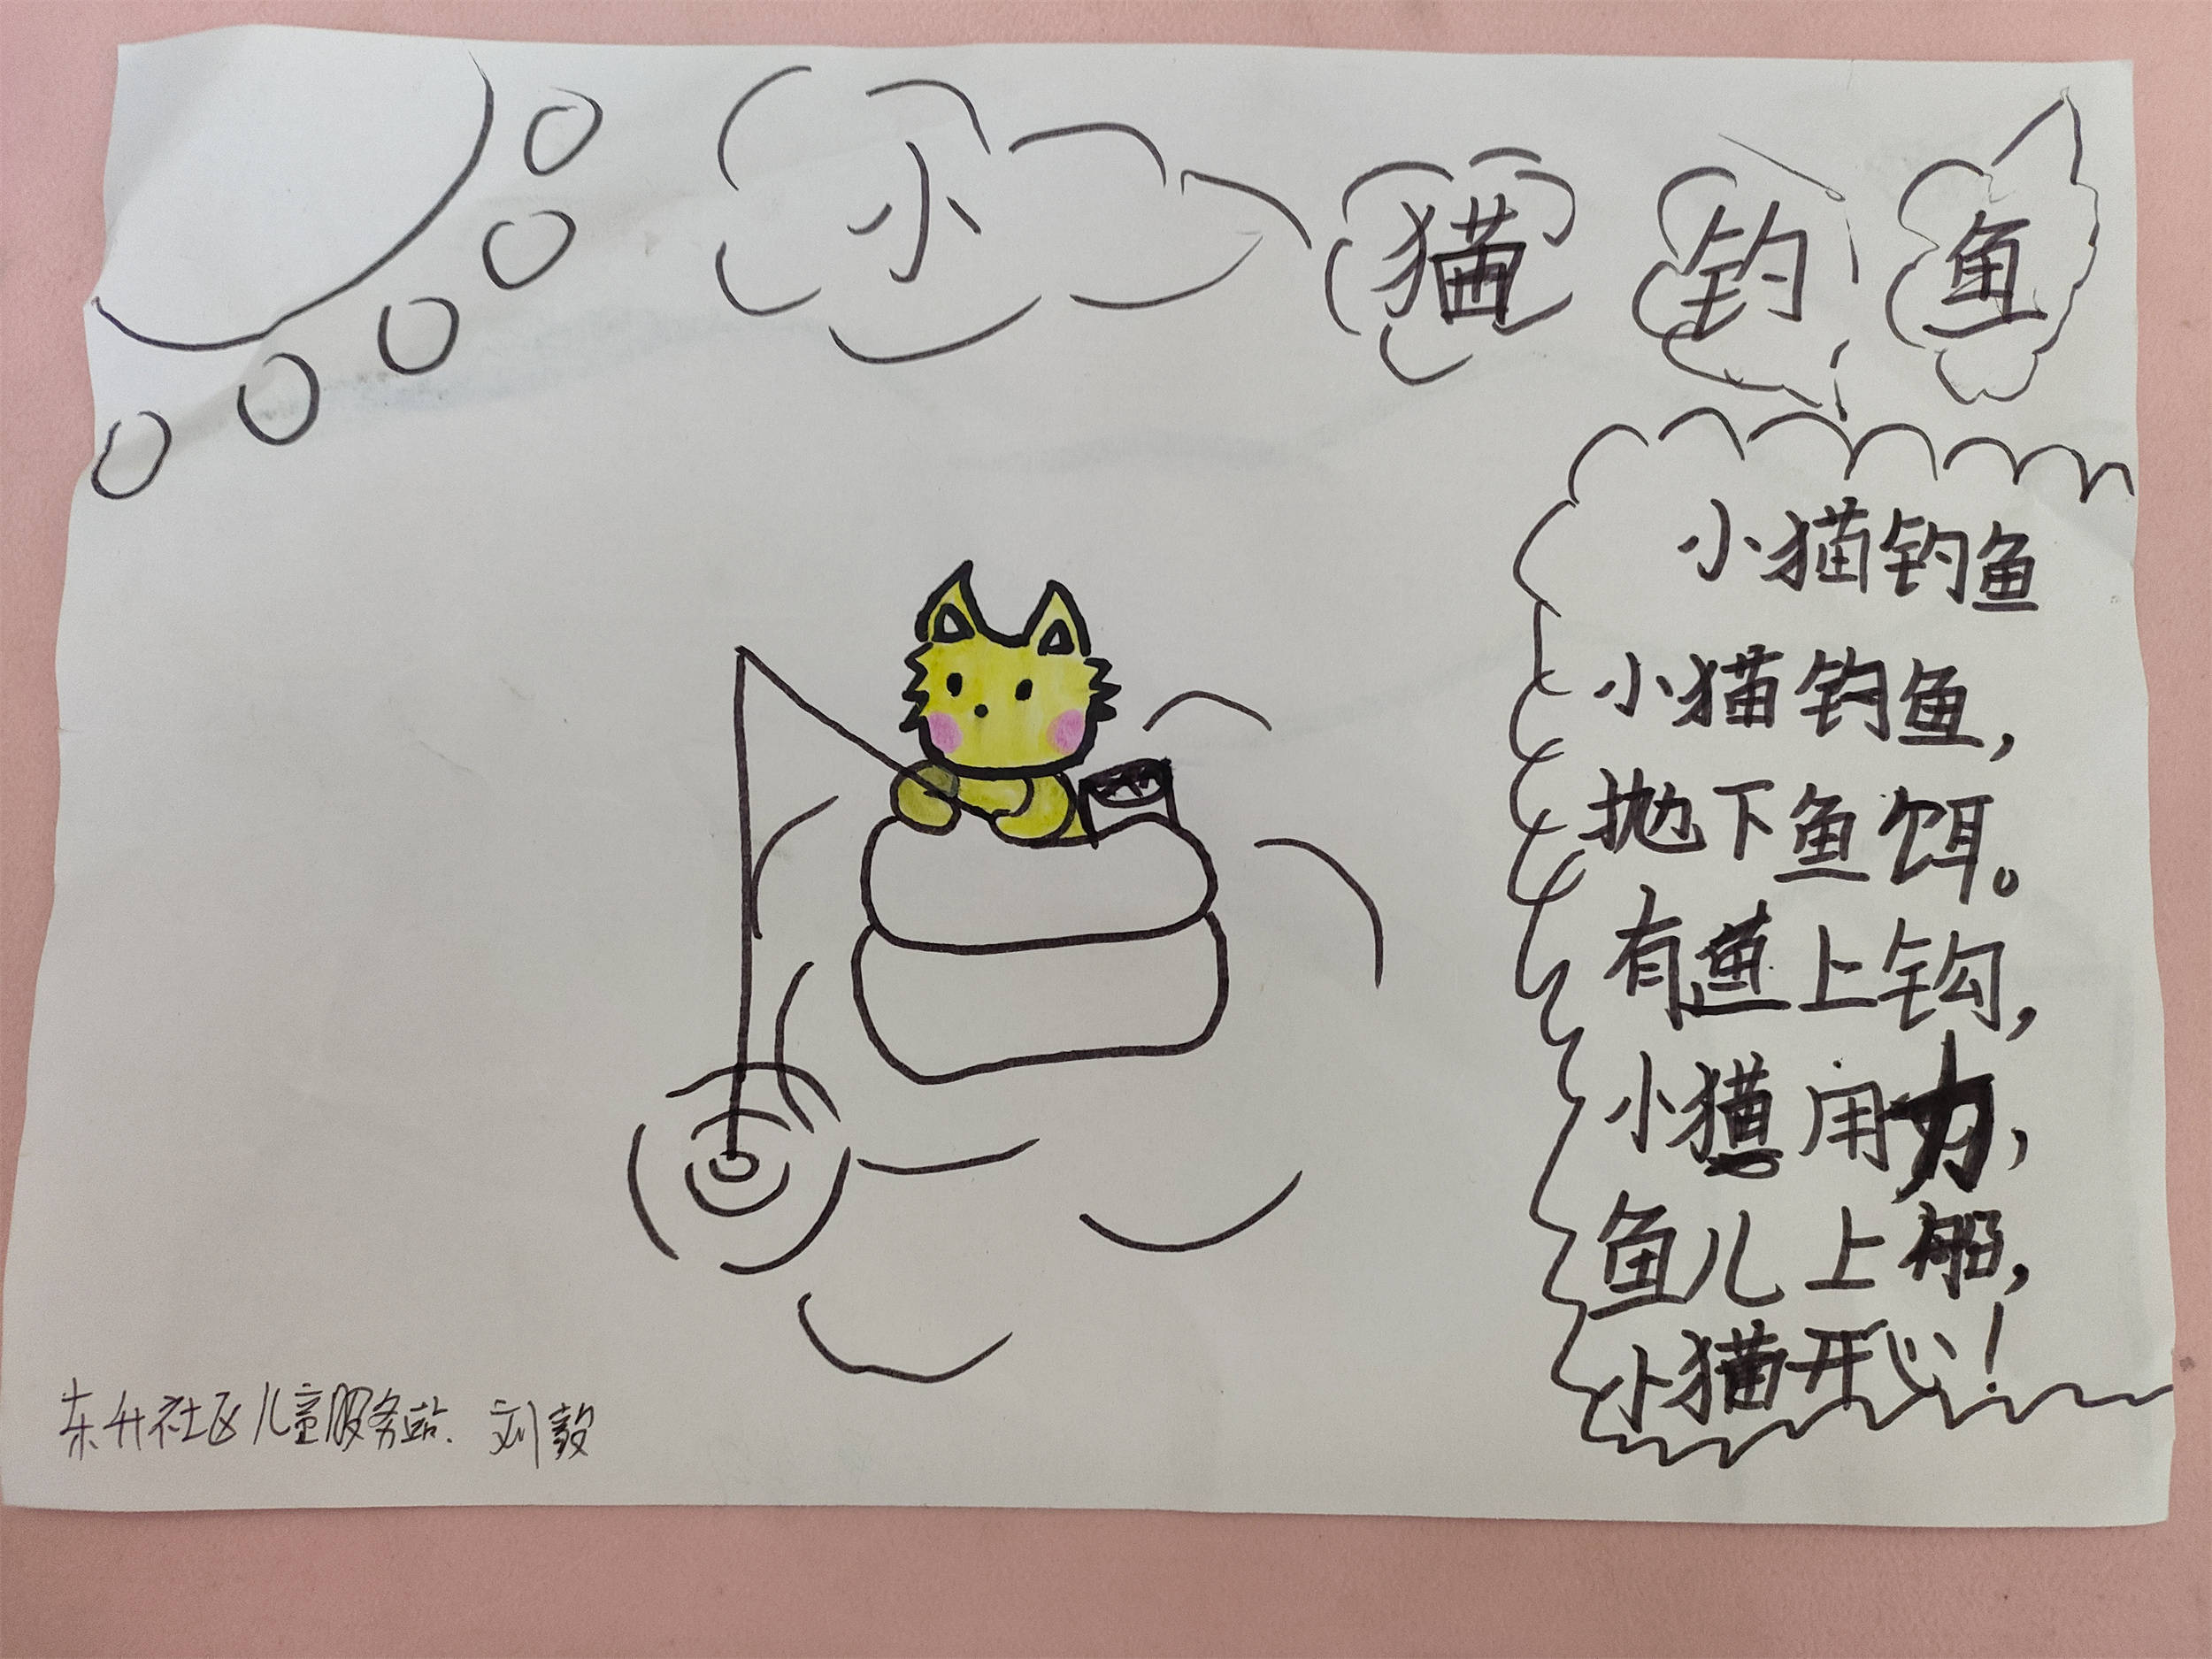 小猫钓鱼
小猫钓鱼
小猫钓鱼,
抛下鱼饵。
有鱼上钩,
小猫用力,
鱼儿上船,
小猫开心!
东升社区儿童服务站. 刘